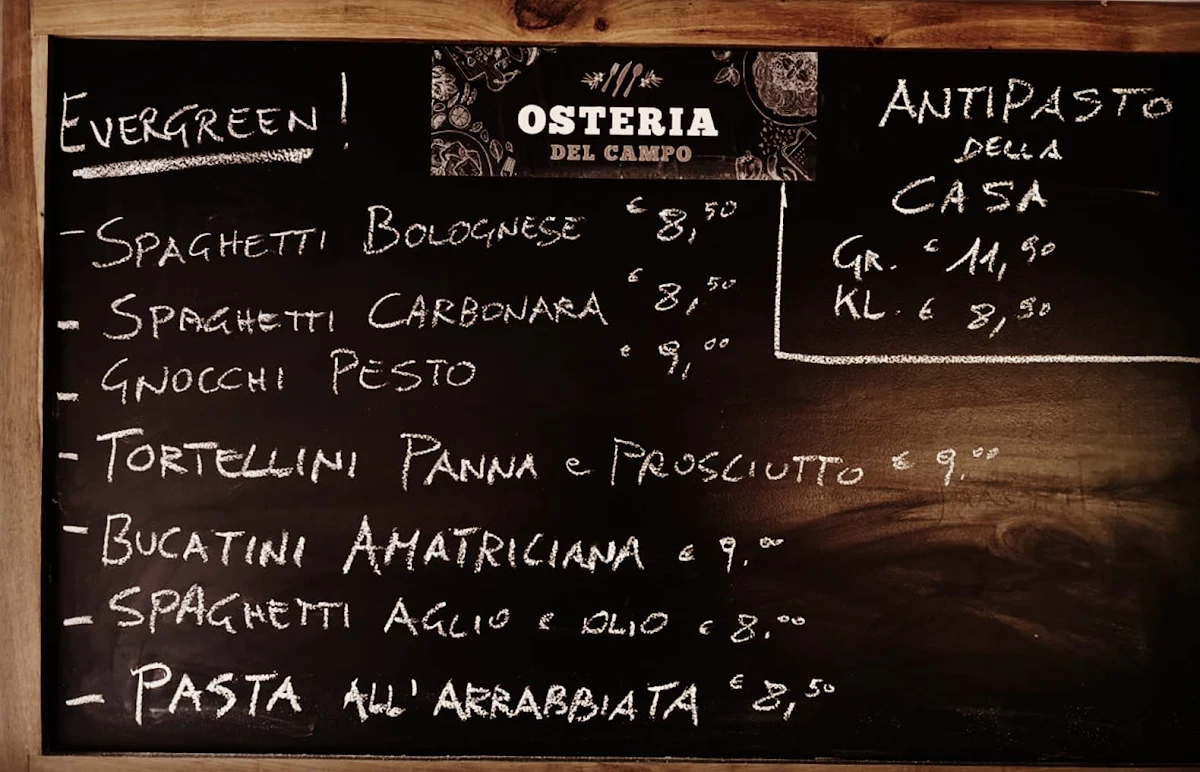 EVERGREEN!
OSTERIA
DEL CAMPO
- SPAGHETTI BOLOGNESE € 8,50
- SPAGHETTI CARBONARA € 8,50
- GNOCCHI PESTO € 9,00
- TORTELLINI PANNA e PROSCIUTTO € 9.00
- BUCATINI AMATRICIANA € 9.00
- SPAGHETTI AGLIO E OLIO € 8.00
- PASTA ALL'ARRABBIATA € 8,50
ANTIPASTO
DELLA
CASA
GR. € 11,90
KL. € 8,90